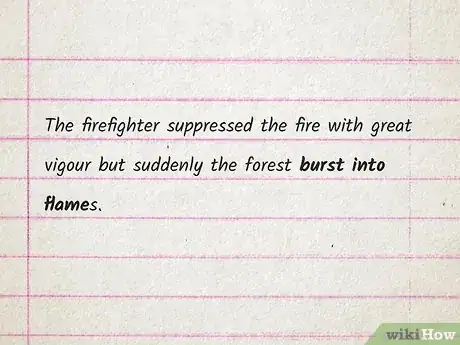 The firefighter suppressed the fire with great
vigour but suddenly the forest burst into
flames.
wikiHow